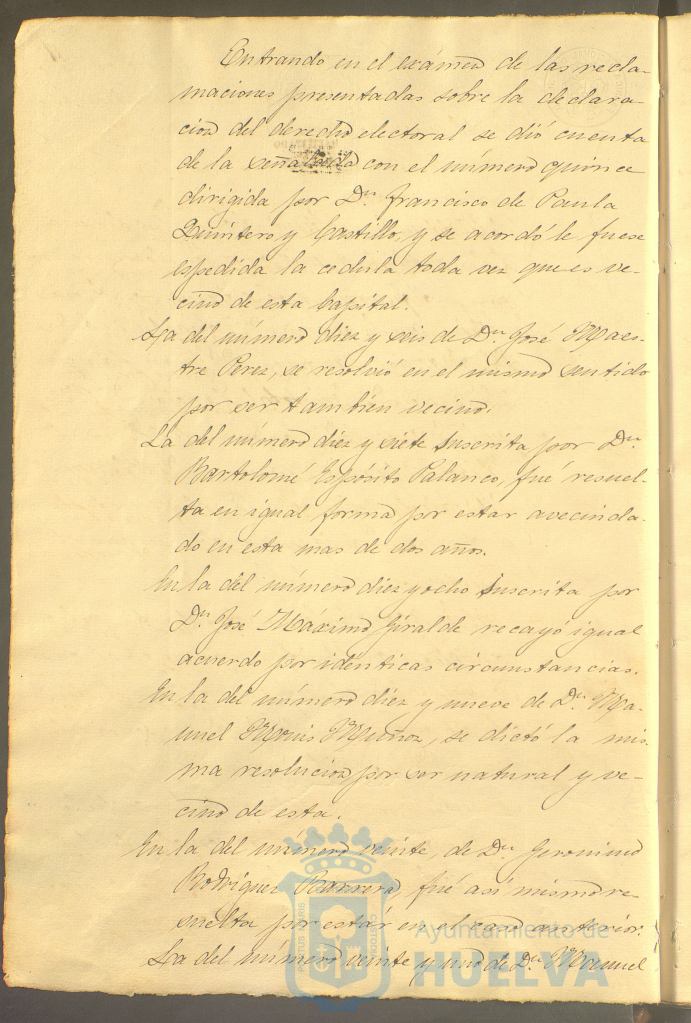 Entrando en el exámen de las recla-
maciones presentadas sobre la declara-
cion del derecho electoral se dió cuenta
de la señalada con el número quince
dirigida por Dn. Francisco de Paula
Quintero y Castillo, y se acordó le fuese
espedida la cedula toda vez que es ve-
cino de esta Capital.
La del número diez y seis de Dn. José Maes-
tre Perez, se resolvió en el mismo sentido
por ser tambien vecino.
La del número diez y siete suscrita por Dn.
Bartolomé Espósito Palanco, fué resuel-
ta en igual forma por estar avecinda-
do en esta mas de dos años.
En la del número diez y ocho suscrita por
Dn. José Máximo Giralde recayó igual
acuerdo por idénticas circunstancias.
En la del número diez y nueve de Dn. Ma-
nuel Muñoz, se dictó la mis-
ma resolucion por ser natural y ve-
cino de esta.
En la del número veinte, de Dn. Geronimo
Rodriguez Barrera, fué asi mismo re-
suelta por estár en el caso anterior.
La del número veinte y uno de Dn. Manuel
PORTUS MARIS
CUSTODIA
Ayuntamiento de
HUELVA